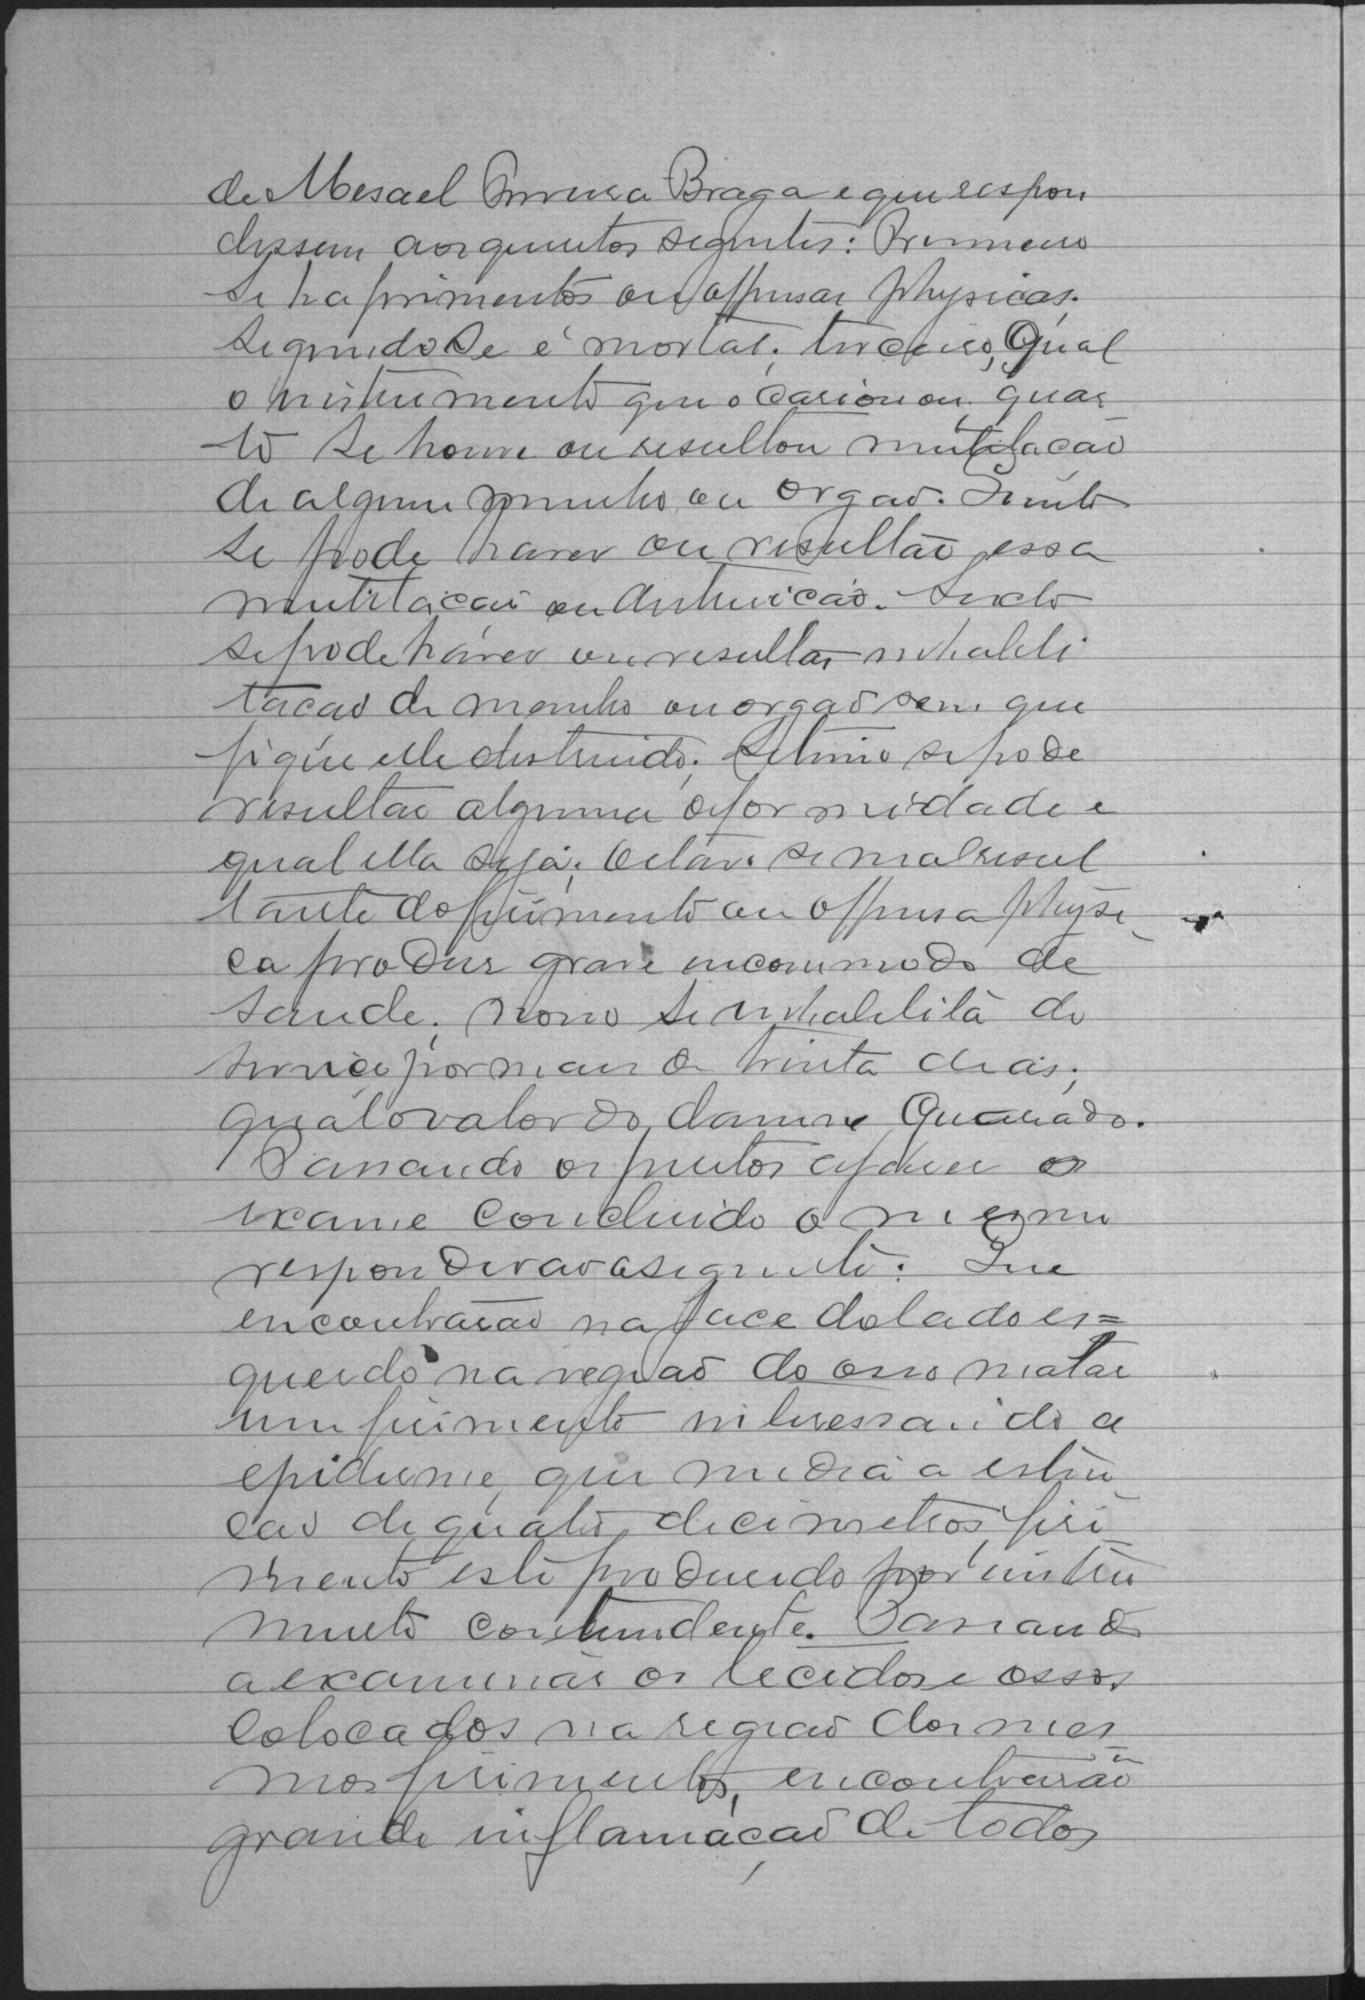 de Mesael Braga e que respon
dessem aos quesitos seguintes: Primeiro
se ha firimentos ou offensas physicas;
segundo se é mortal; terceiro, Qual
o instrumento que o ocasionou; quar
to se houve ou resultou mutilação
de algum membro ou orgão. Quinto
se pode haver ou resultar essa
mutilação ou distruição. Sexto
se pode haver ou resultar inhabili
tação de membro ou orgão sem que
fique elle destruido; setimo se pode
resultar alguma deformidade e
qual ella seja; oitavo se mal resul
tante do firimento ou offensa physi
ca produz grave incommodo de
saude; nono se inhabilita do
serviço por mais de trinta dias;
qual o valor do damno Causado.
Passando os peritos a fazer o
exame concluido o mesmo
responderão o seguinte: Que
encontrarão na face do lado es=
querdo na região do osso malar
um firimento interessando a
epiderme, que media a esten
ção de quatro decimetros, firi
mento este produzido por instru
mento contundente. Passando
a examinar os tecidos e ossos
colocados na região dos mes
mos firimentos, encontrarão
grande inflamação de todos